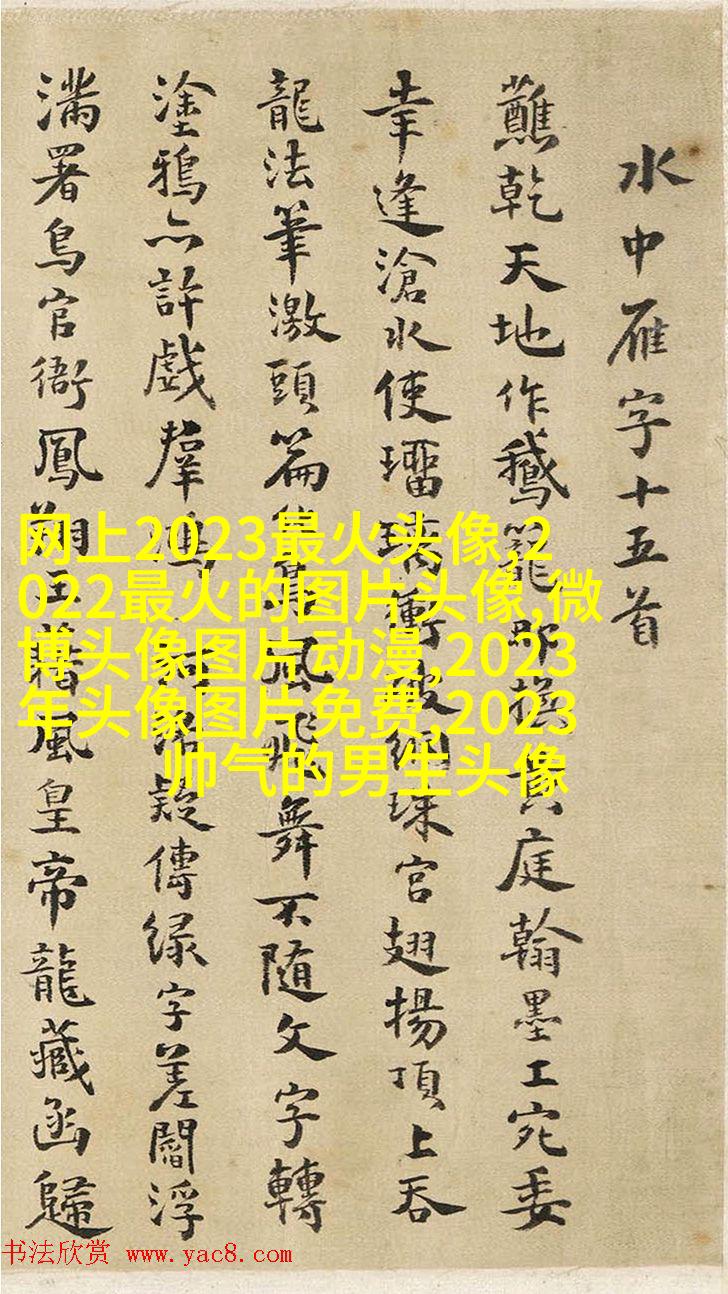 水中雁字十五首
蘸乾天地作鵝籠 即換黃庭翰墨工宛委
幸逢滄水使璢璃衝破網珠宮翅揚頂上吞
龍法筆激頭篇 風飛舞不隨文字轉
塗鴉亦許戲羣鴻 疑傳綠字差閻浮
滿署鳥官衙鳳翔王籍風皇帝龍藏函歸
网上2023最火头像,2
022最火的图片头像,微
博头像图片动漫,2023
年头像图片免费,2023
帅气的男生头像
书法欣赏 www.yac8.com